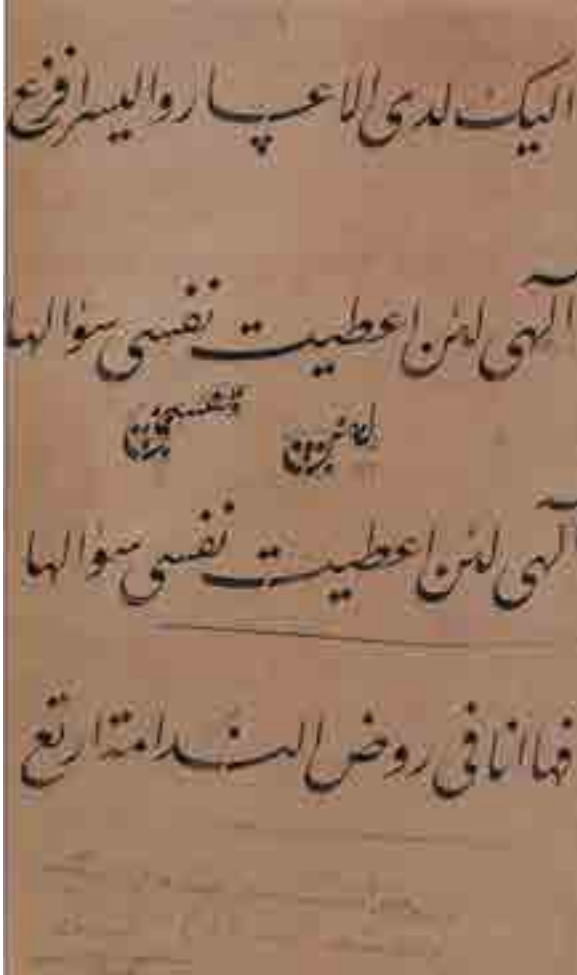 اليك لدى الاعسار واليسر افزع
الهى لئن اعطيت نفسى سؤالها
الهى لئن اعطيت نفسى سؤالها
فها انا فى روض الندامة ارتع